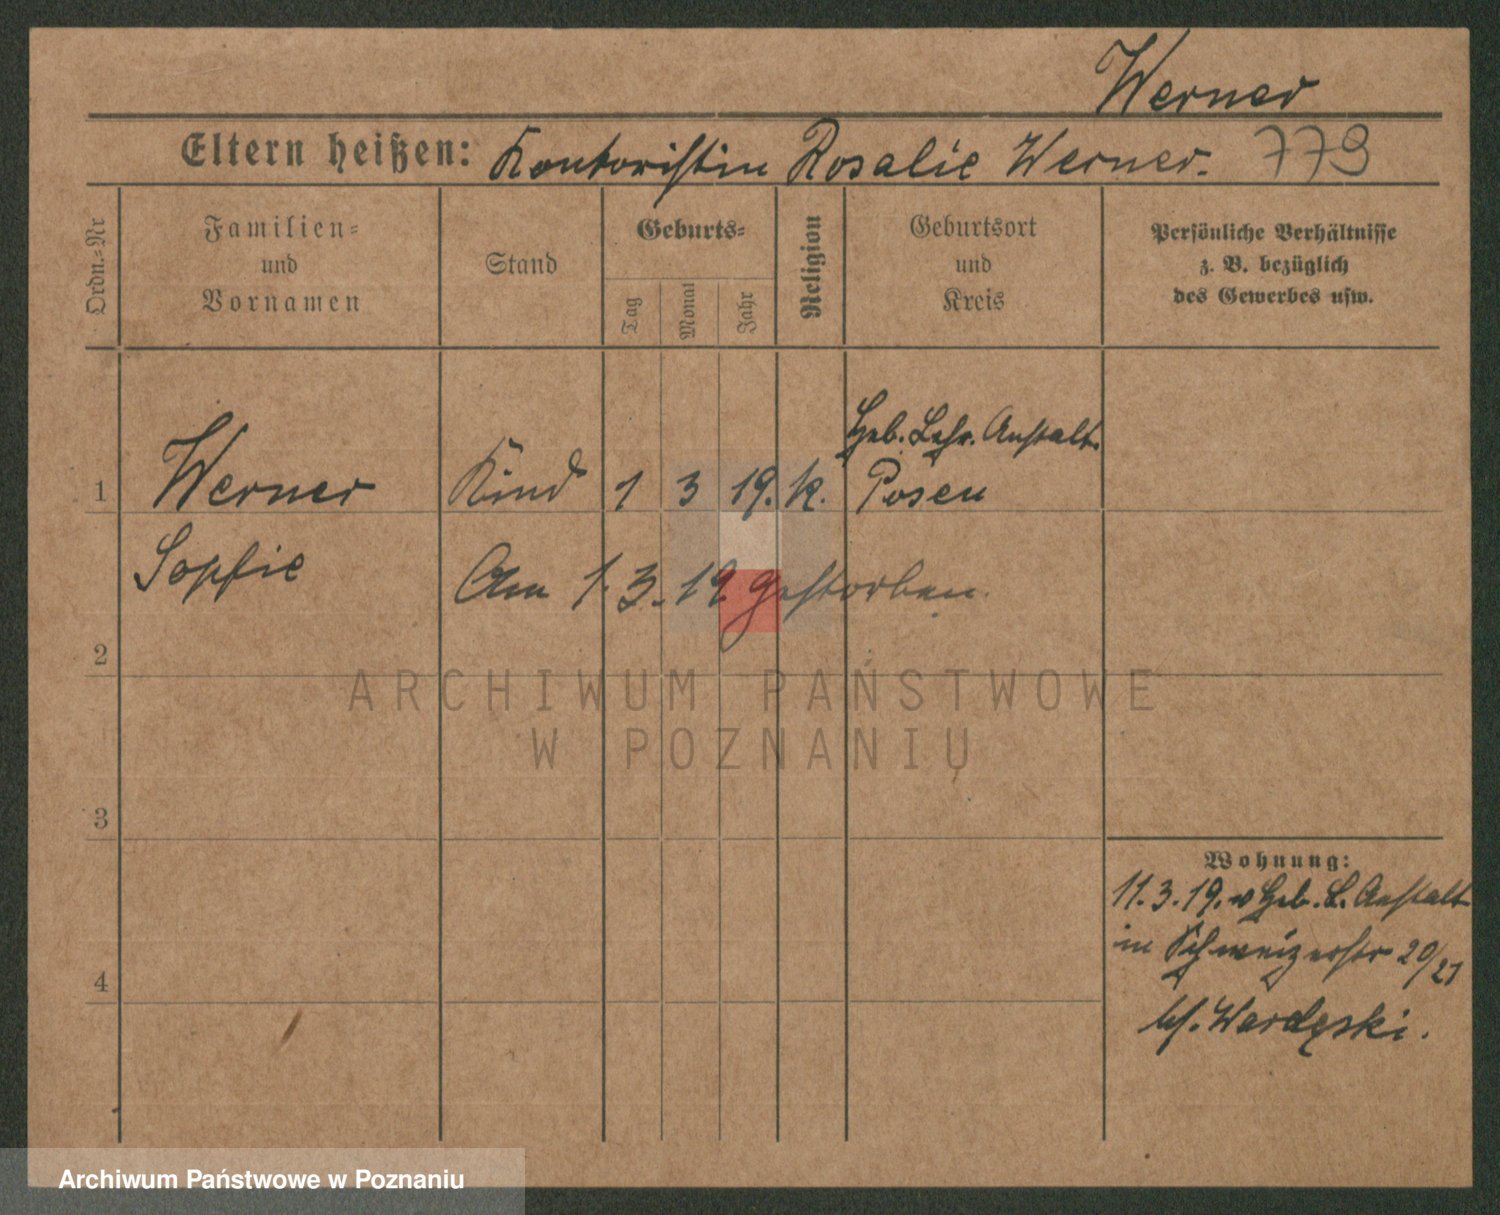 Werner
Eltern heißen: Kontoristin Rosalie Werner. 779
Ordn.-Nr
Familien-
und
Vornamen
Stand
Geburts-
Tag
Monat
Jahr
Religion
Geburtsort
und
Kreis
Persönliche Verhältnisse
z. B. bezüglich
des Gewerbes usw.
Geb. Lehr. Anstalt.
1 Werner Kind 1 3 19. k. Posen
Sophie Am 1. 3. 19 gestorben.
2
ARCHIWUM PAŃSTWOWE
W POZNANIU
3
Wohnung:
11.3.19. v Geb. L. Anstalt
in Schweizerstr 20/21
4
bf. Wardęski.
Archiwum Państwowe w Poznaniu